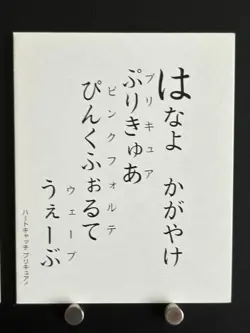 はなよ　かがやけ
プリキュア
ぷりきゅあ
ピンクフォルテ
ぴんくふぉるて
ウェーブ
うぇーぶ
ハートキャッチプリキュア!